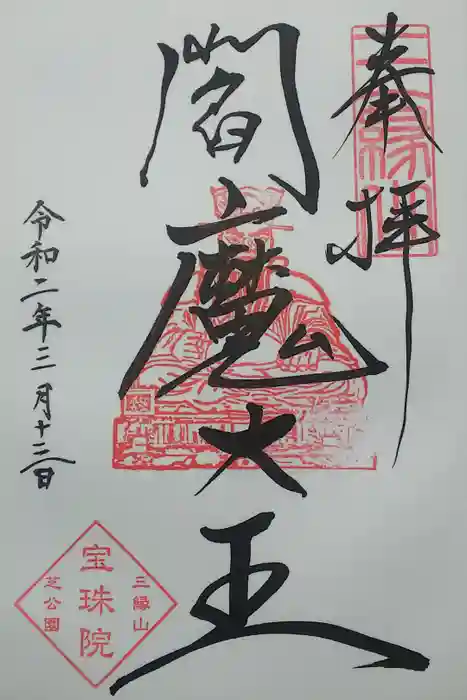 奉拝
三縁山
閻魔大王
令和二年三月十三日
三縁山
宝珠院
芝公園